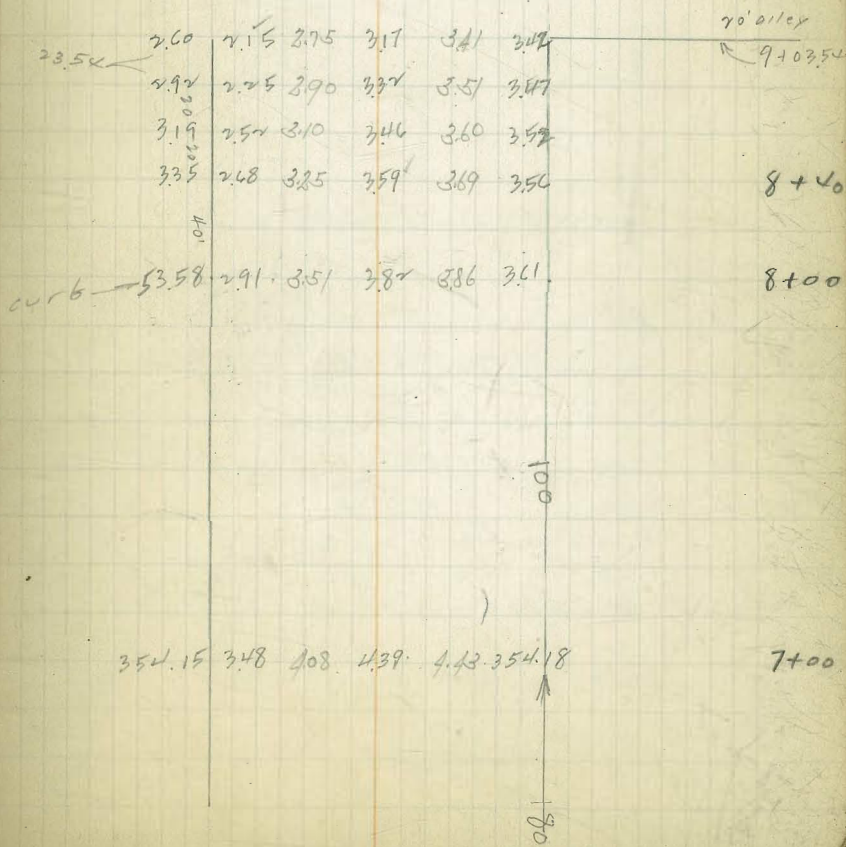 20' alley
2.60 2.15 2.75 3.17 3.41 3.42
23.54 9+03.54
2.92 2.25 2.90 3.32 3.51 3.47
20
3.19 2.52 3.10 3.46 3.60 3.52
20
3.35 2.68 3.25 3.59 3.69 3.56 8+40
40'
curb 53.58 2.91 3.51 3.82 3.86 3.61 8+00
100
354.15 3.48 4.08 4.39 4.43 354.18 7+00